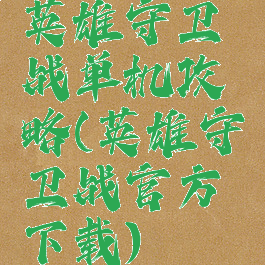 英雄守卫
战单机攻
略(英雄守
卫战官方
下载)